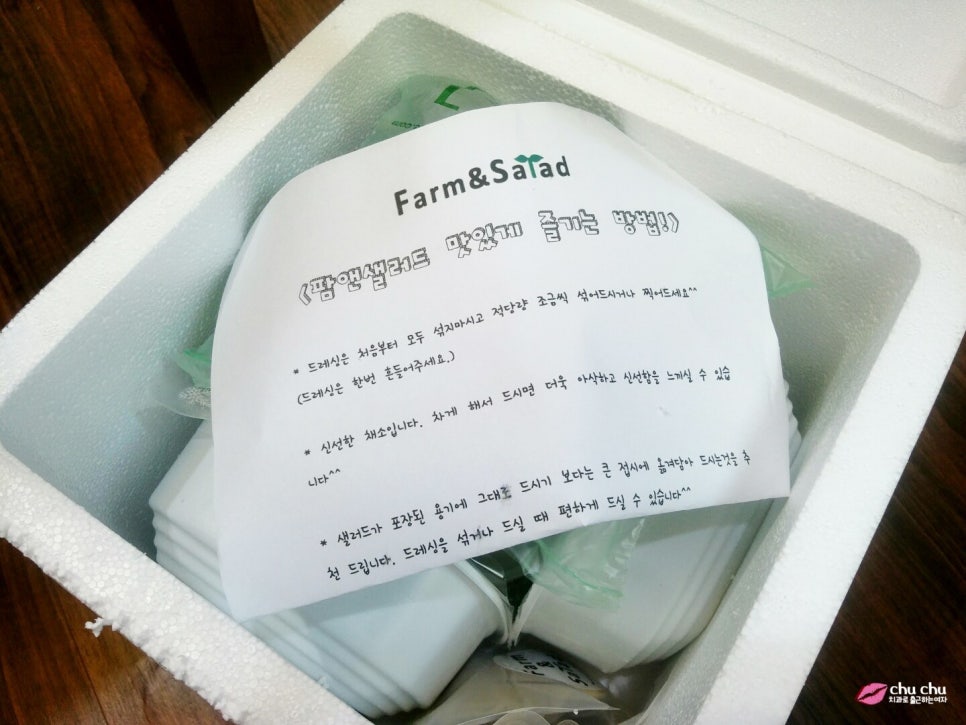 Farm&Salad
<팜앤샐러드 맛있게 즐기는 방법!>
* 드레싱은 처음부터 모두 섞지마시고 적당량 조금씩 섞어드시거나 찍어드세요^^
(드레싱은 한번 흔들어주세요.)
* 신선한 채소입니다. 차게 해서 드시면 더욱 아삭하고 신선함을 느끼실 수 있습
니다^^
* 샐러드가 포장된 용기에 그대로 드시기 보다는 큰 접시에 옮겨담아 드시는것을 추
천 드립니다. 드레싱을 섞거나 드실 때 편하게 드실 수 있습니다^^
chu chu
치과로 출근하는여자